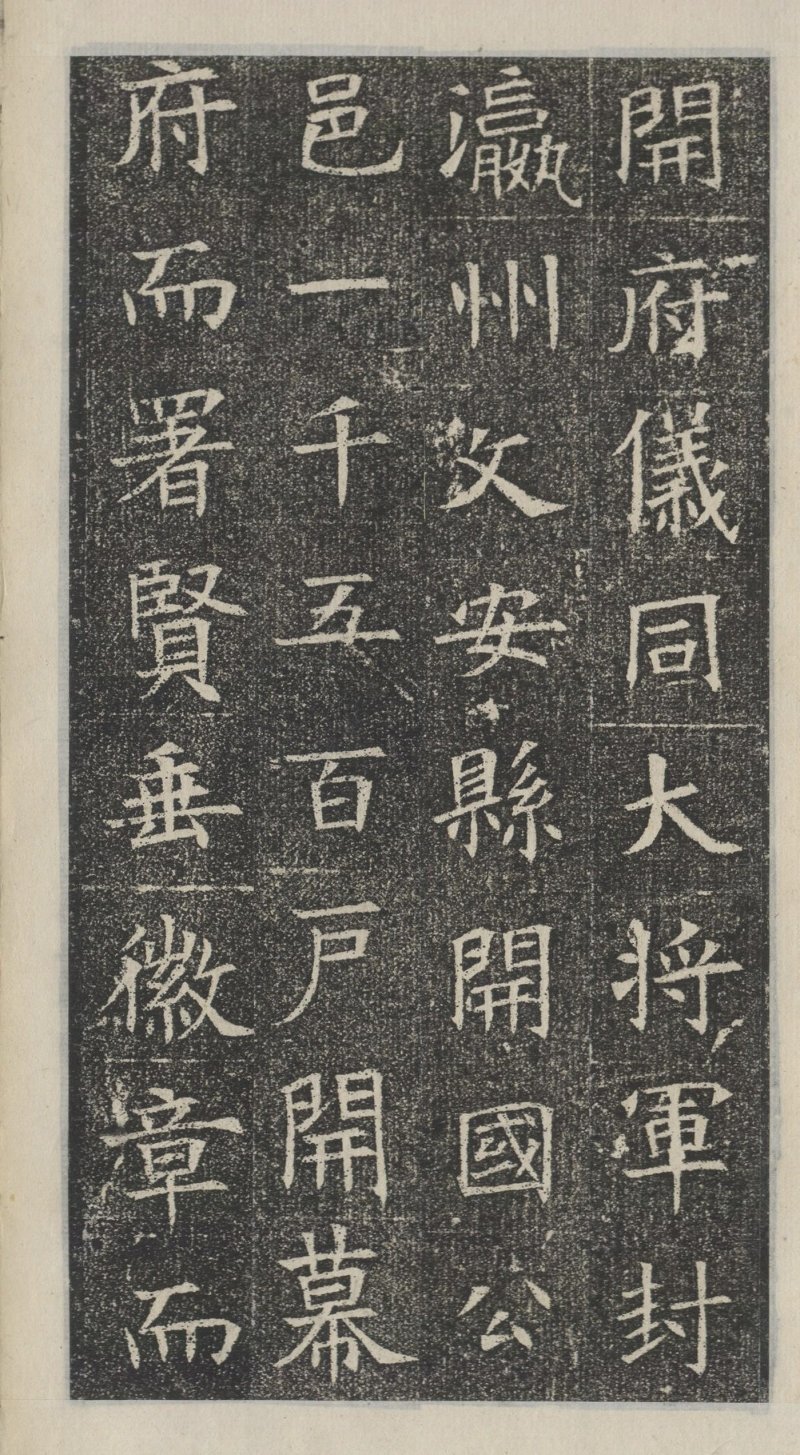 開府儀同大將軍封
瀛州文安縣開國公
邑一千五百戶開幕
府而署賢垂徽章而